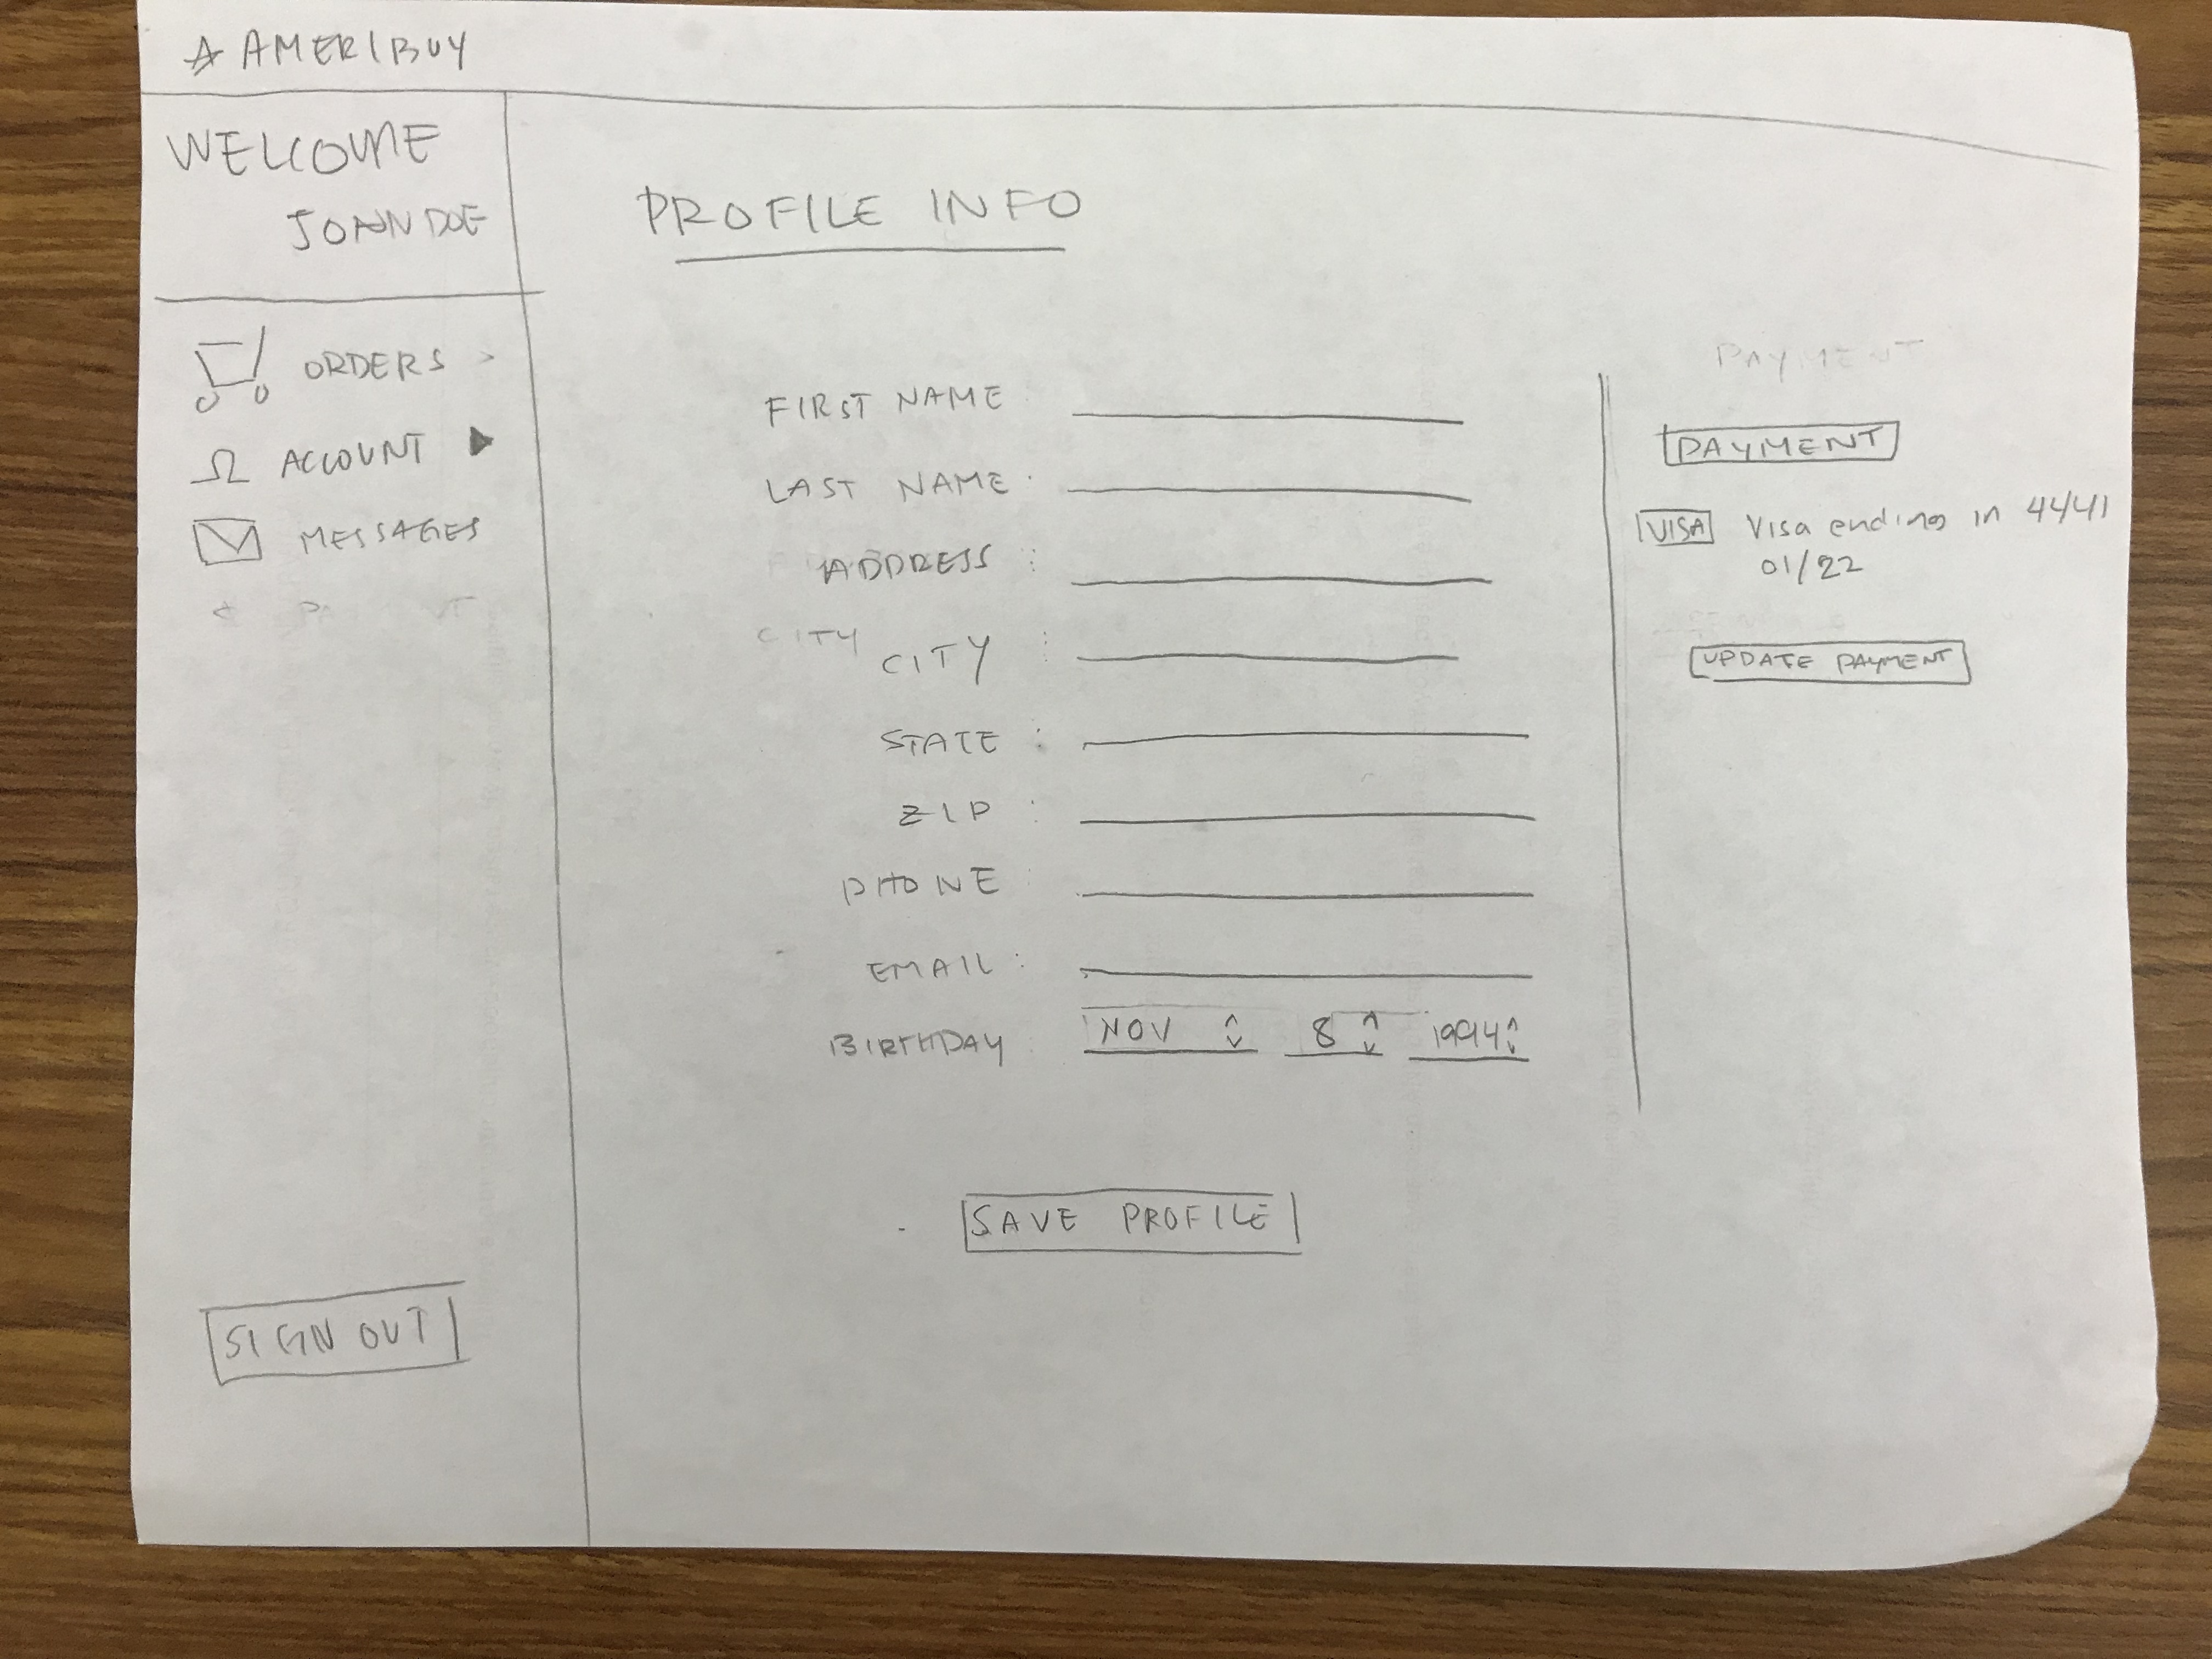 AMERIBUY
WELCOME
JOHN DOE
ORDERS >
ACCOUNT
MESSAGES
SIGN OUT
PROFILE INFO
FIRST NAME
LAST NAME :
ADDRESS :
CITY CITY :
STATE :
ZIP :
PHONE
EMAIL :
BIRTHDAY NOV 8 1994
SAVE PROFILE
PAYMENT
PAYMENT
VISA Visa ending in 4441
01/22
UPDATE PAYMENT